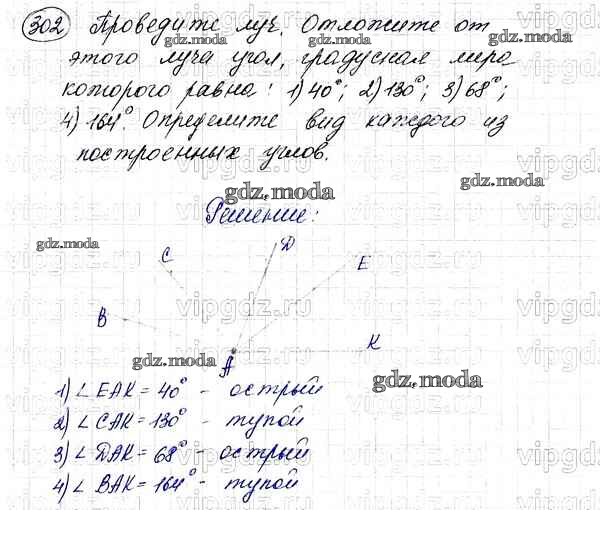 302 Проведите луч. Отложите от
этого луча угол, градусная мера
которого равна: 1) 40°; 2) 130°; 3) 68°;
4) 164°. Определите вид каждого из
построенных углов.
Решение:
C D E
B A K
1) ∠ EAK = 40° - острый
2) ∠ CAK = 130° - тупой
3) ∠ DAK = 68° - острый
4) ∠ BAK = 164° - тупой
gdz.moda
gdz.moda
gdz.moda
gdz.moda
gdz.moda
gdz.moda
gdz.moda
gdz.moda
gdz.moda
gdz.moda
vipgdz.ru